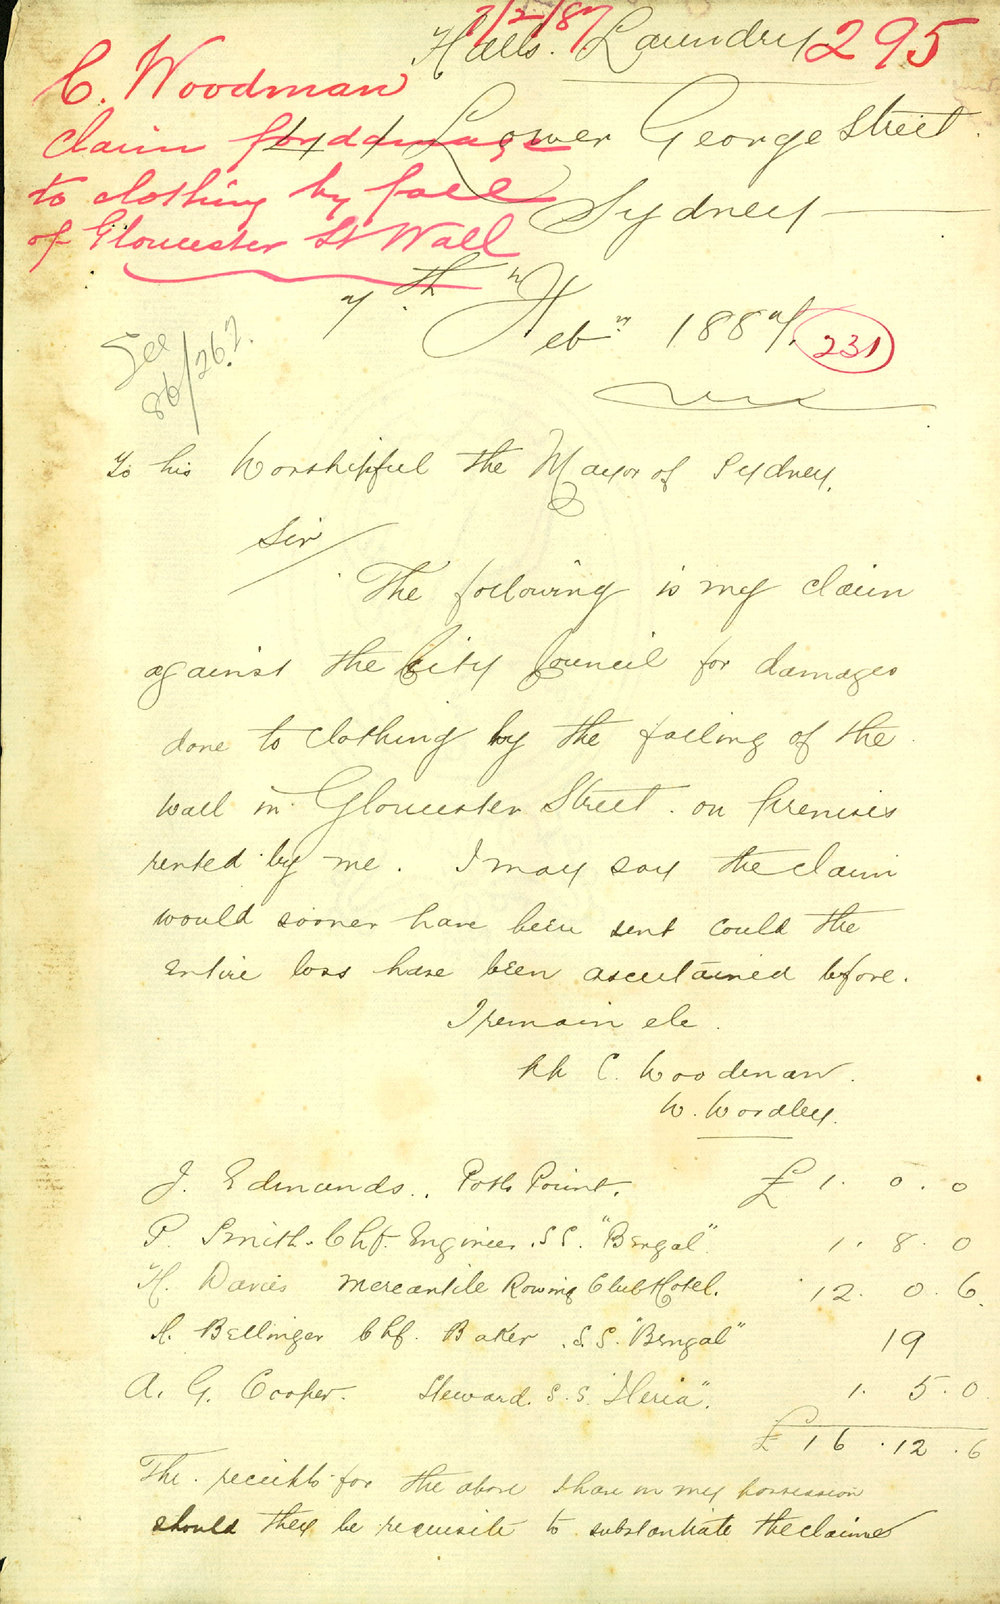 7/2/87
Halls. Laundry 295
C. Woodman
claim for damage
to clothing by fall
of Gloucester St Wall
Lower George Street.
Sydney
7th Feby 1887.
231
See
86/267.
To his Worshipful the Mayor of Sydney.
Sir
The following is my claim
against the City Council for damages
done to clothing by the falling of the
wall in Gloucester Street. on premises
rented by me. I may say the claim
would sooner have been sent could the
entire loss have been ascertained before.
I remain etc.
pp C. Woodman.
W. Wordley.
J. Edmunds.. Potts Point. £ 1. 0. 0
P. Smith. Chf. Engineer. S.S. "Bengal" 1. 8. 0
H. Davies Mercantile Rowing Club Hotel. 12. 0. 6.
A. Bellinger Chf. Baker. S.S. "Bengal" 19
A. G. Cooper. Steward. S.S. 1. 5. 0
£ 16. 12. 6
The receipts for the above I have in my possession
should they be requisite to substantiate the claims